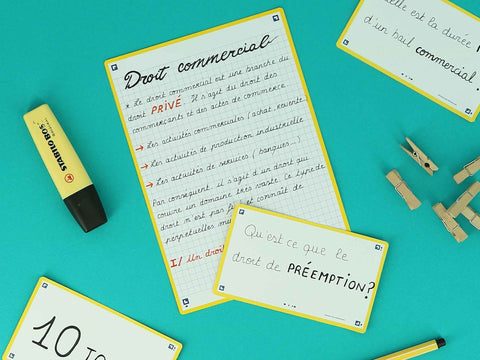 Droit commercial
* Le droit commercial est une branche du
droit PRIVÉ. Il s'agit du droit des
commerçants et des actes de commerce
→ Les activités commerciales (achat, revente
→ Les activités de production industrielle
→ Les activités de services (banques...)
Par conséquent, il s'agit d'un droit qui
couvre un domaine très vaste. Ce type de
droit n'est pas figé et connaît de
perpetuelles
I/ Un droit
Qu'est ce que le
droit de PRÉEMPTION?
elle est la durée
d'un bail commercial
STABILO BOSS
10